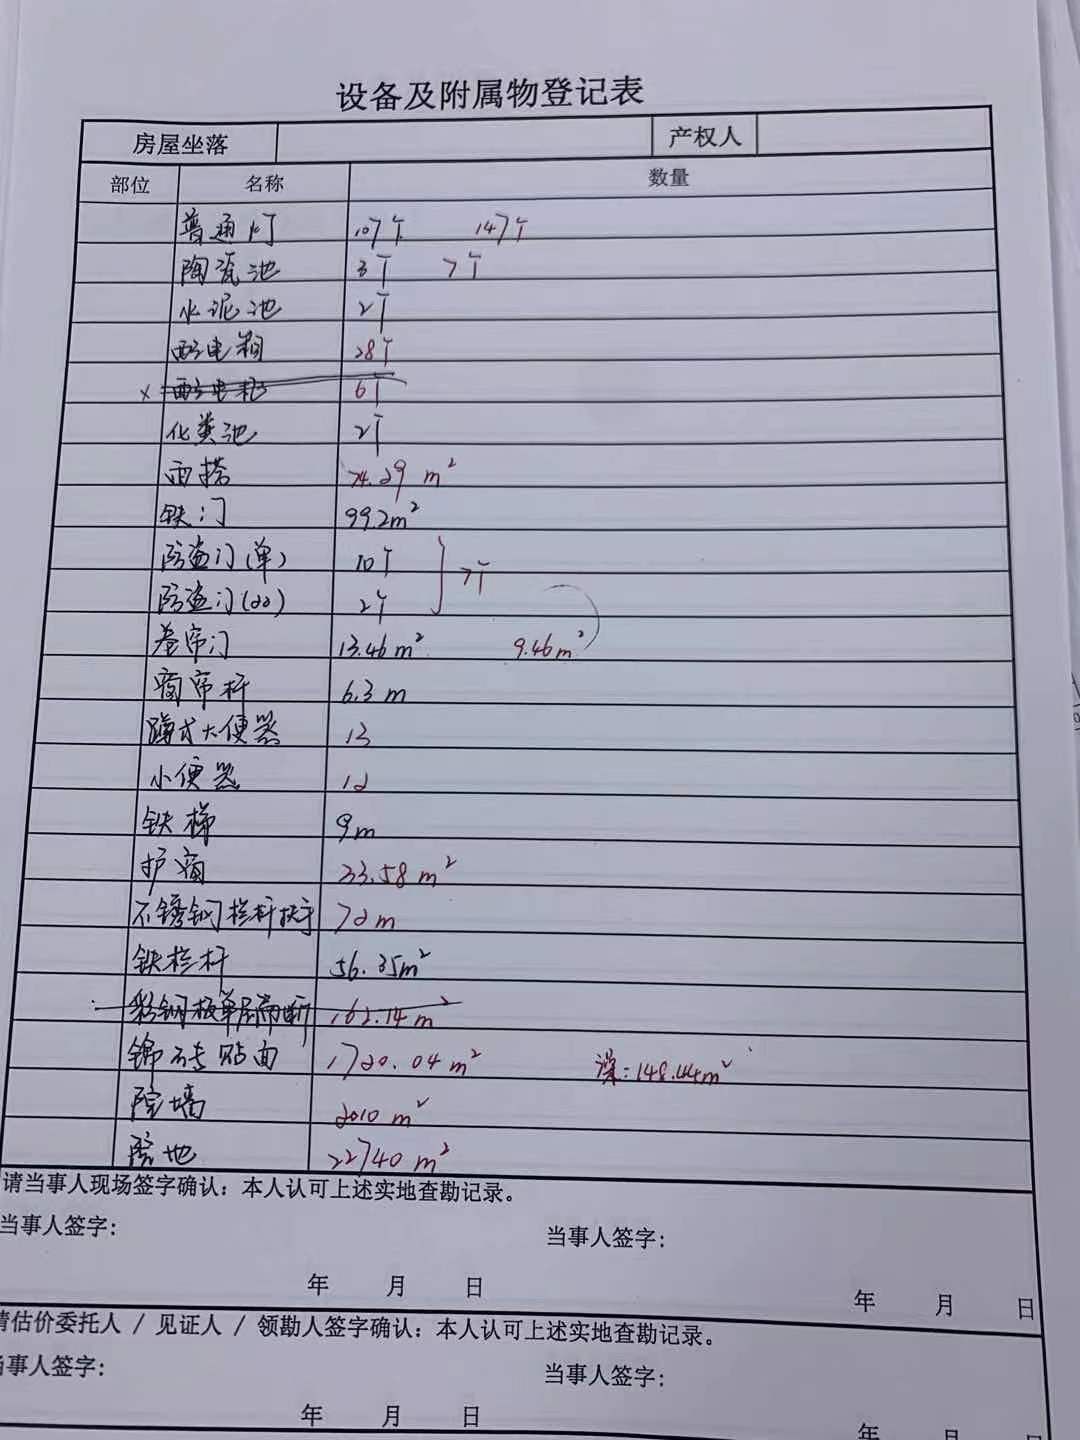 设备及附属物登记表
房屋坐落 产权人
部位 名称 数量
普通灯 107个 147个
陶瓷池 3个 7个
水泥池 2个
配电箱 28个
× 配电柜 6个
化粪池 2个
雨搭 74.29 m²
铁门 99.2m²
防盗门(单) 10个 7个
防盗门(双) 2个
卷帘门 13.46m² 9.46m²
窗帘杆 6.3m
蹲式大便器 13
小便器 12
铁梯 9m
护窗 33.58m²
不锈钢栏杆扶手 72m
铁栏杆 56.35m²
彩钢板单层隔断 162.14m²
锦砖贴面 1720.04m² 澡:148.44m²
院墙 2010m²
院地 22740m²
请当事人现场签字确认：本人认可上述实地查勘记录。
当事人签字: 当事人签字:
年 月 日 年 月 日
请估价委托人 / 见证人 / 领勘人签字确认：本人认可上述实地查勘记录。
当事人签字: 当事人签字:
年 月 日 年 月 日